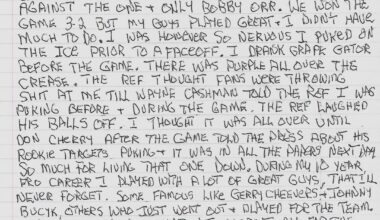 AGAINST THE ONE + ONLY BOBBY ORR. WE WON THE
GAME 3-2 BUT MY GUYS PLAYED GREAT + I DIDN'T HAVE
MUCH TO DO. I WAS HOWEVER SO NERVOUS I PUKED ON
THE ICE PRIOR TO A FACEOFF. I DRANK GRAPE GATOR
BEFORE THE GAME. THERE WAS PURPLE ALL OVER THE
CREASE. THE REF THOUGHT FANS WERE THROWING
SHIT AT ME TILL WAYNE CASHMAN TOLD THE REF I WAS
PUKING BEFORE + DURING THE GAME. THE REF LAUGHED
HIS BALLS OFF. I THOUGHT IT WAS ALL OVER UNTIL
DON CHERRY AFTER THE GAME TOLD THE PRESS ABOUT HIS
ROOKIE TARGETS PUKING + IT WAS IN ALL THE PAPERS NEXT DAY
SO MUCH FOR LIVING THAT ONE DOWN. DURING MY 10 YEAR
PRO CAREER I PLAYED WITH A LOT OF GREAT GUYS, THAT I'LL
NEVER FORGET. SOME FAMOUS LIKE GERRY CHEEVERS + JOHNNY
BUCYK, OTHERS WHO JUST WENT OUT + PLAYED FOR THE TEAM.